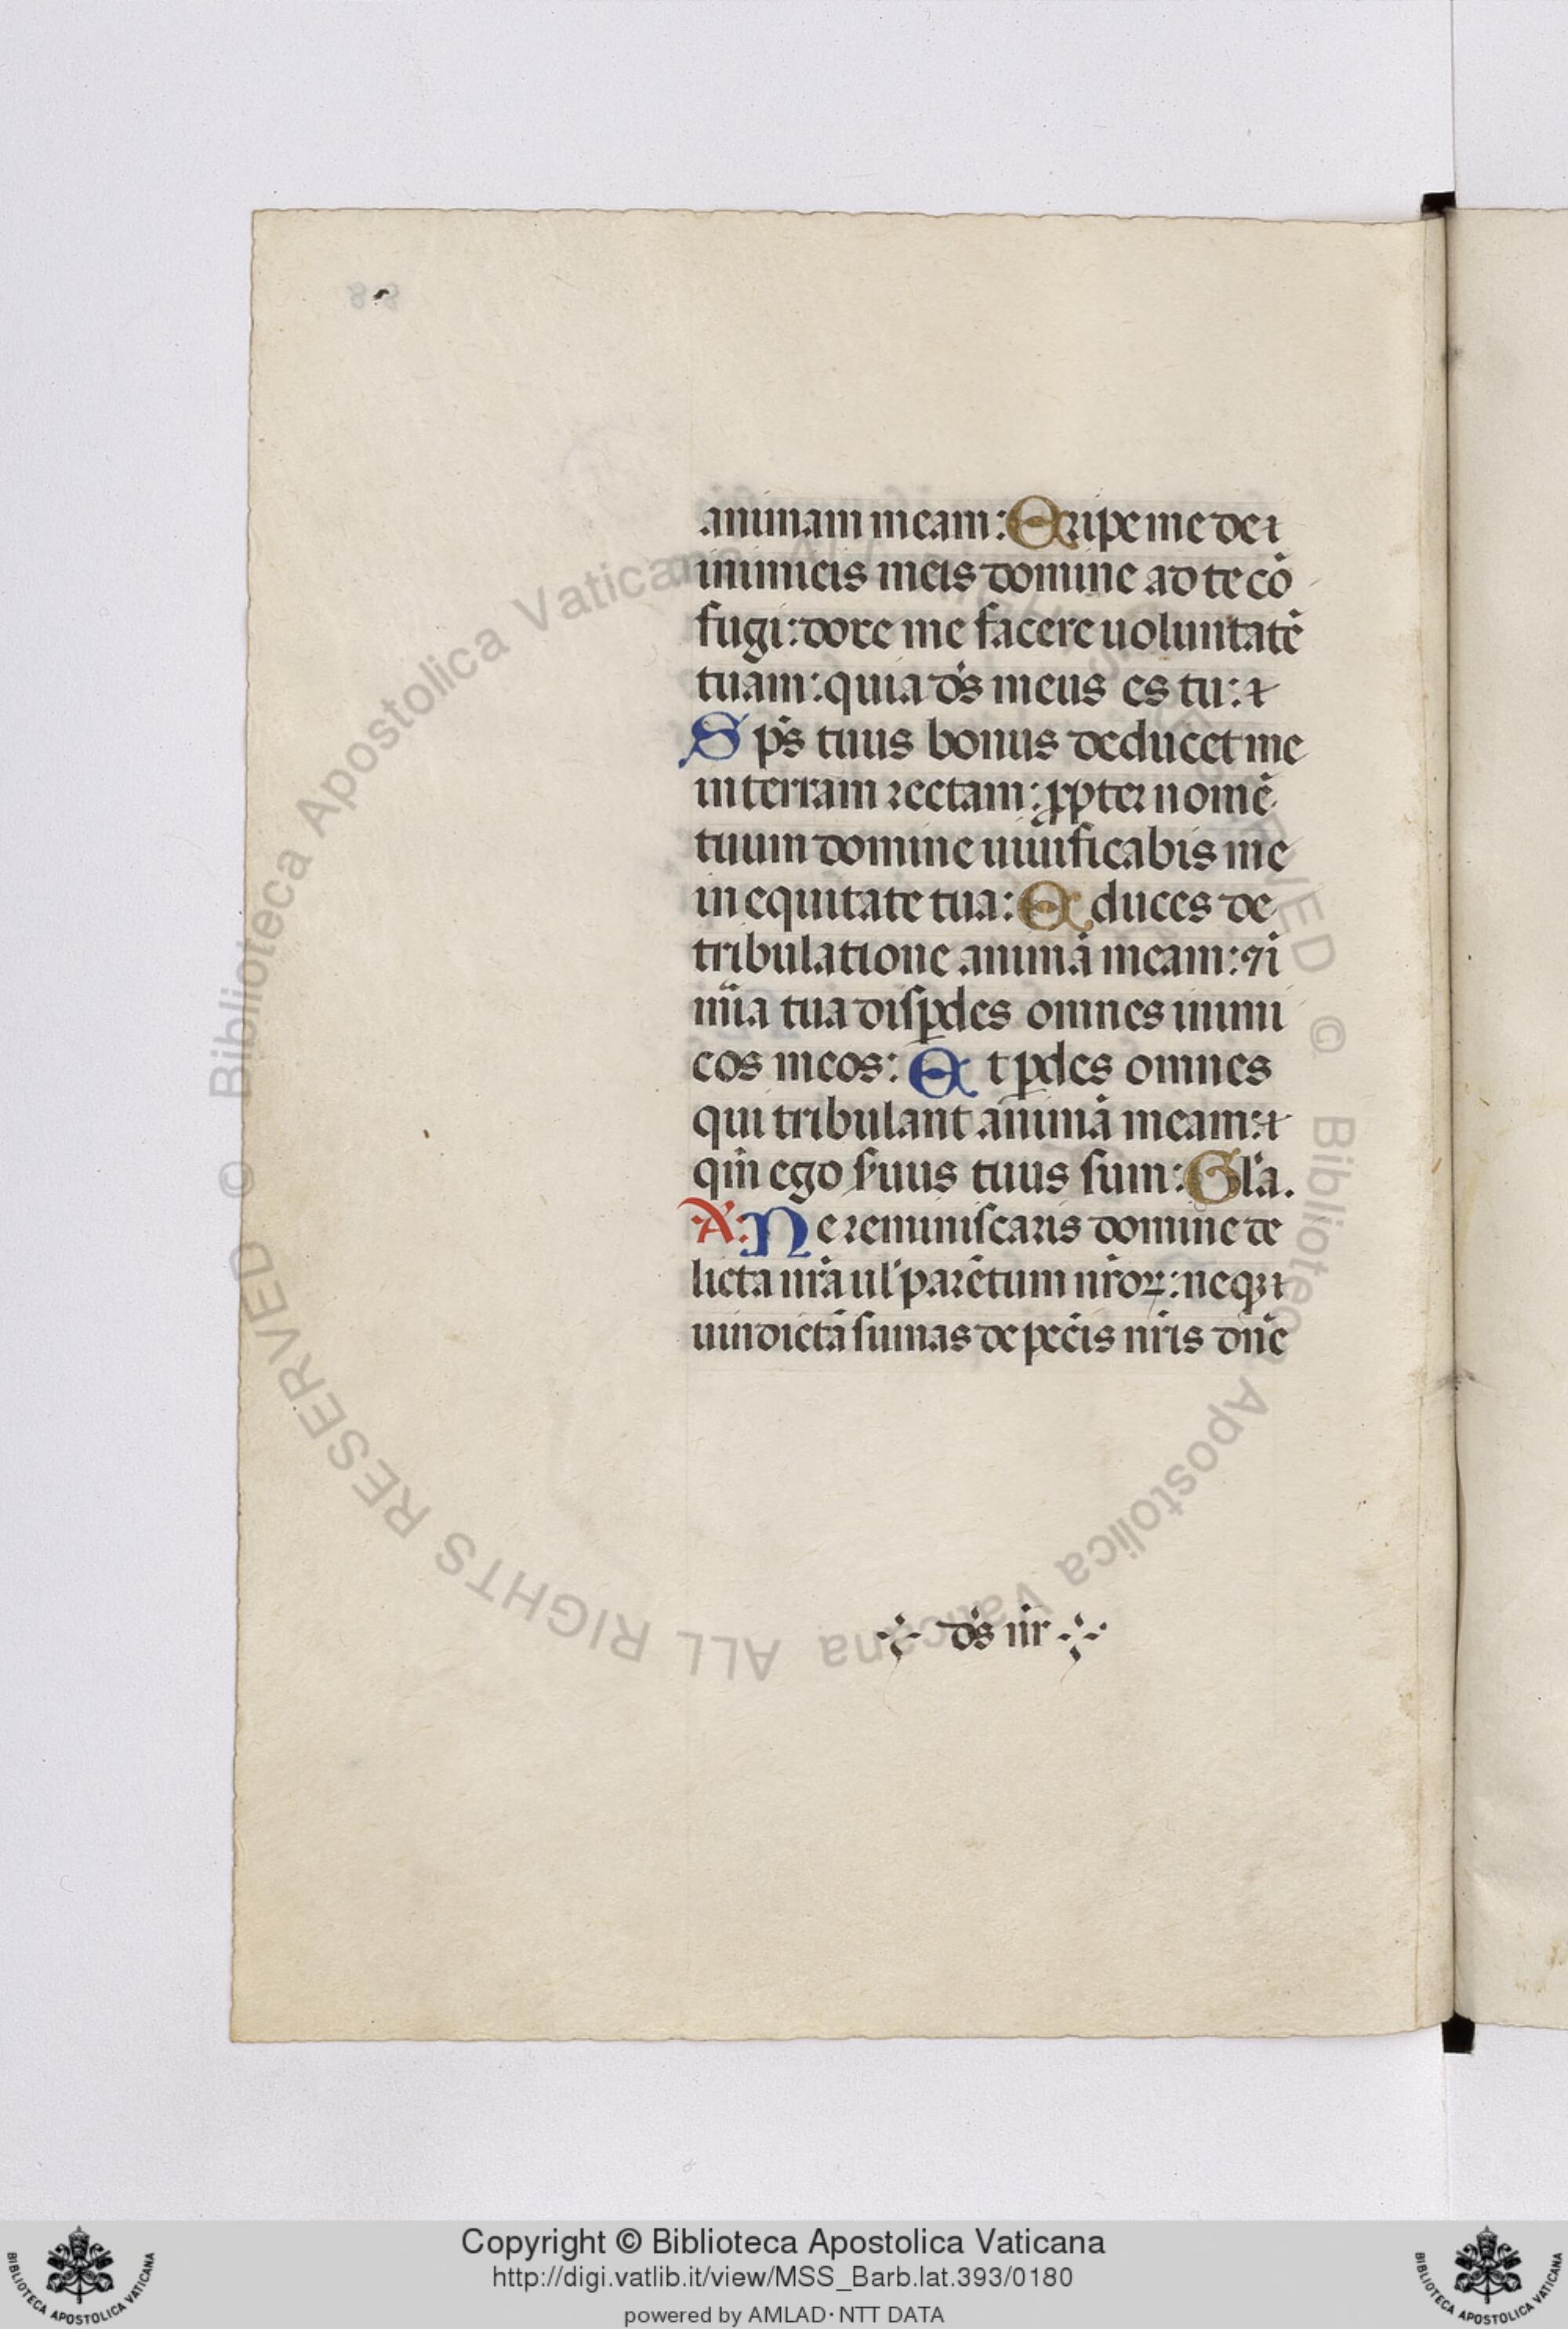 animam meam: Eripe me de i
inimicis meis domine ad te cō
fugi: doce me facere uoluntatē
tuam: quia ds̄ meus es tu: ⁊
Sps̄ tuus bonus deducet me
in terram rectam: ꝓpter nomē
tuum domine uiuificabis me
in equitate tua: Educes de
tribulatione animā meam: ⁊ i
mīa tua disꝑdes omnes inimi
cos meos: Et ꝑdes omnes
qui tribulant animā meam: ⁊
qm̄ ego s̄uus tuus sum: Gl'a.
A. Ne reminiscaris domine de
licta nr̄a ul' parētum nr̄oꝝ: neqꝫ ⁊
uindictā sumas de pec̄is nr̄is dn̄e
ds̄ nr̄
© Biblioteca Apostolica Vaticana ALL RIGHTS RESERVED © Biblioteca Apostolica Vaticana ALL RIGHTS RESERVED
Copyright © Biblioteca Apostolica Vaticana
http://digi.vatlib.it/view/MSS_Barb.lat.393/0180
powered by AMLAD·NTT DATA
BIBLIOTECA APOSTOLICA VATICANA
BIBLIOTECA APOSTOLICA VATICANA